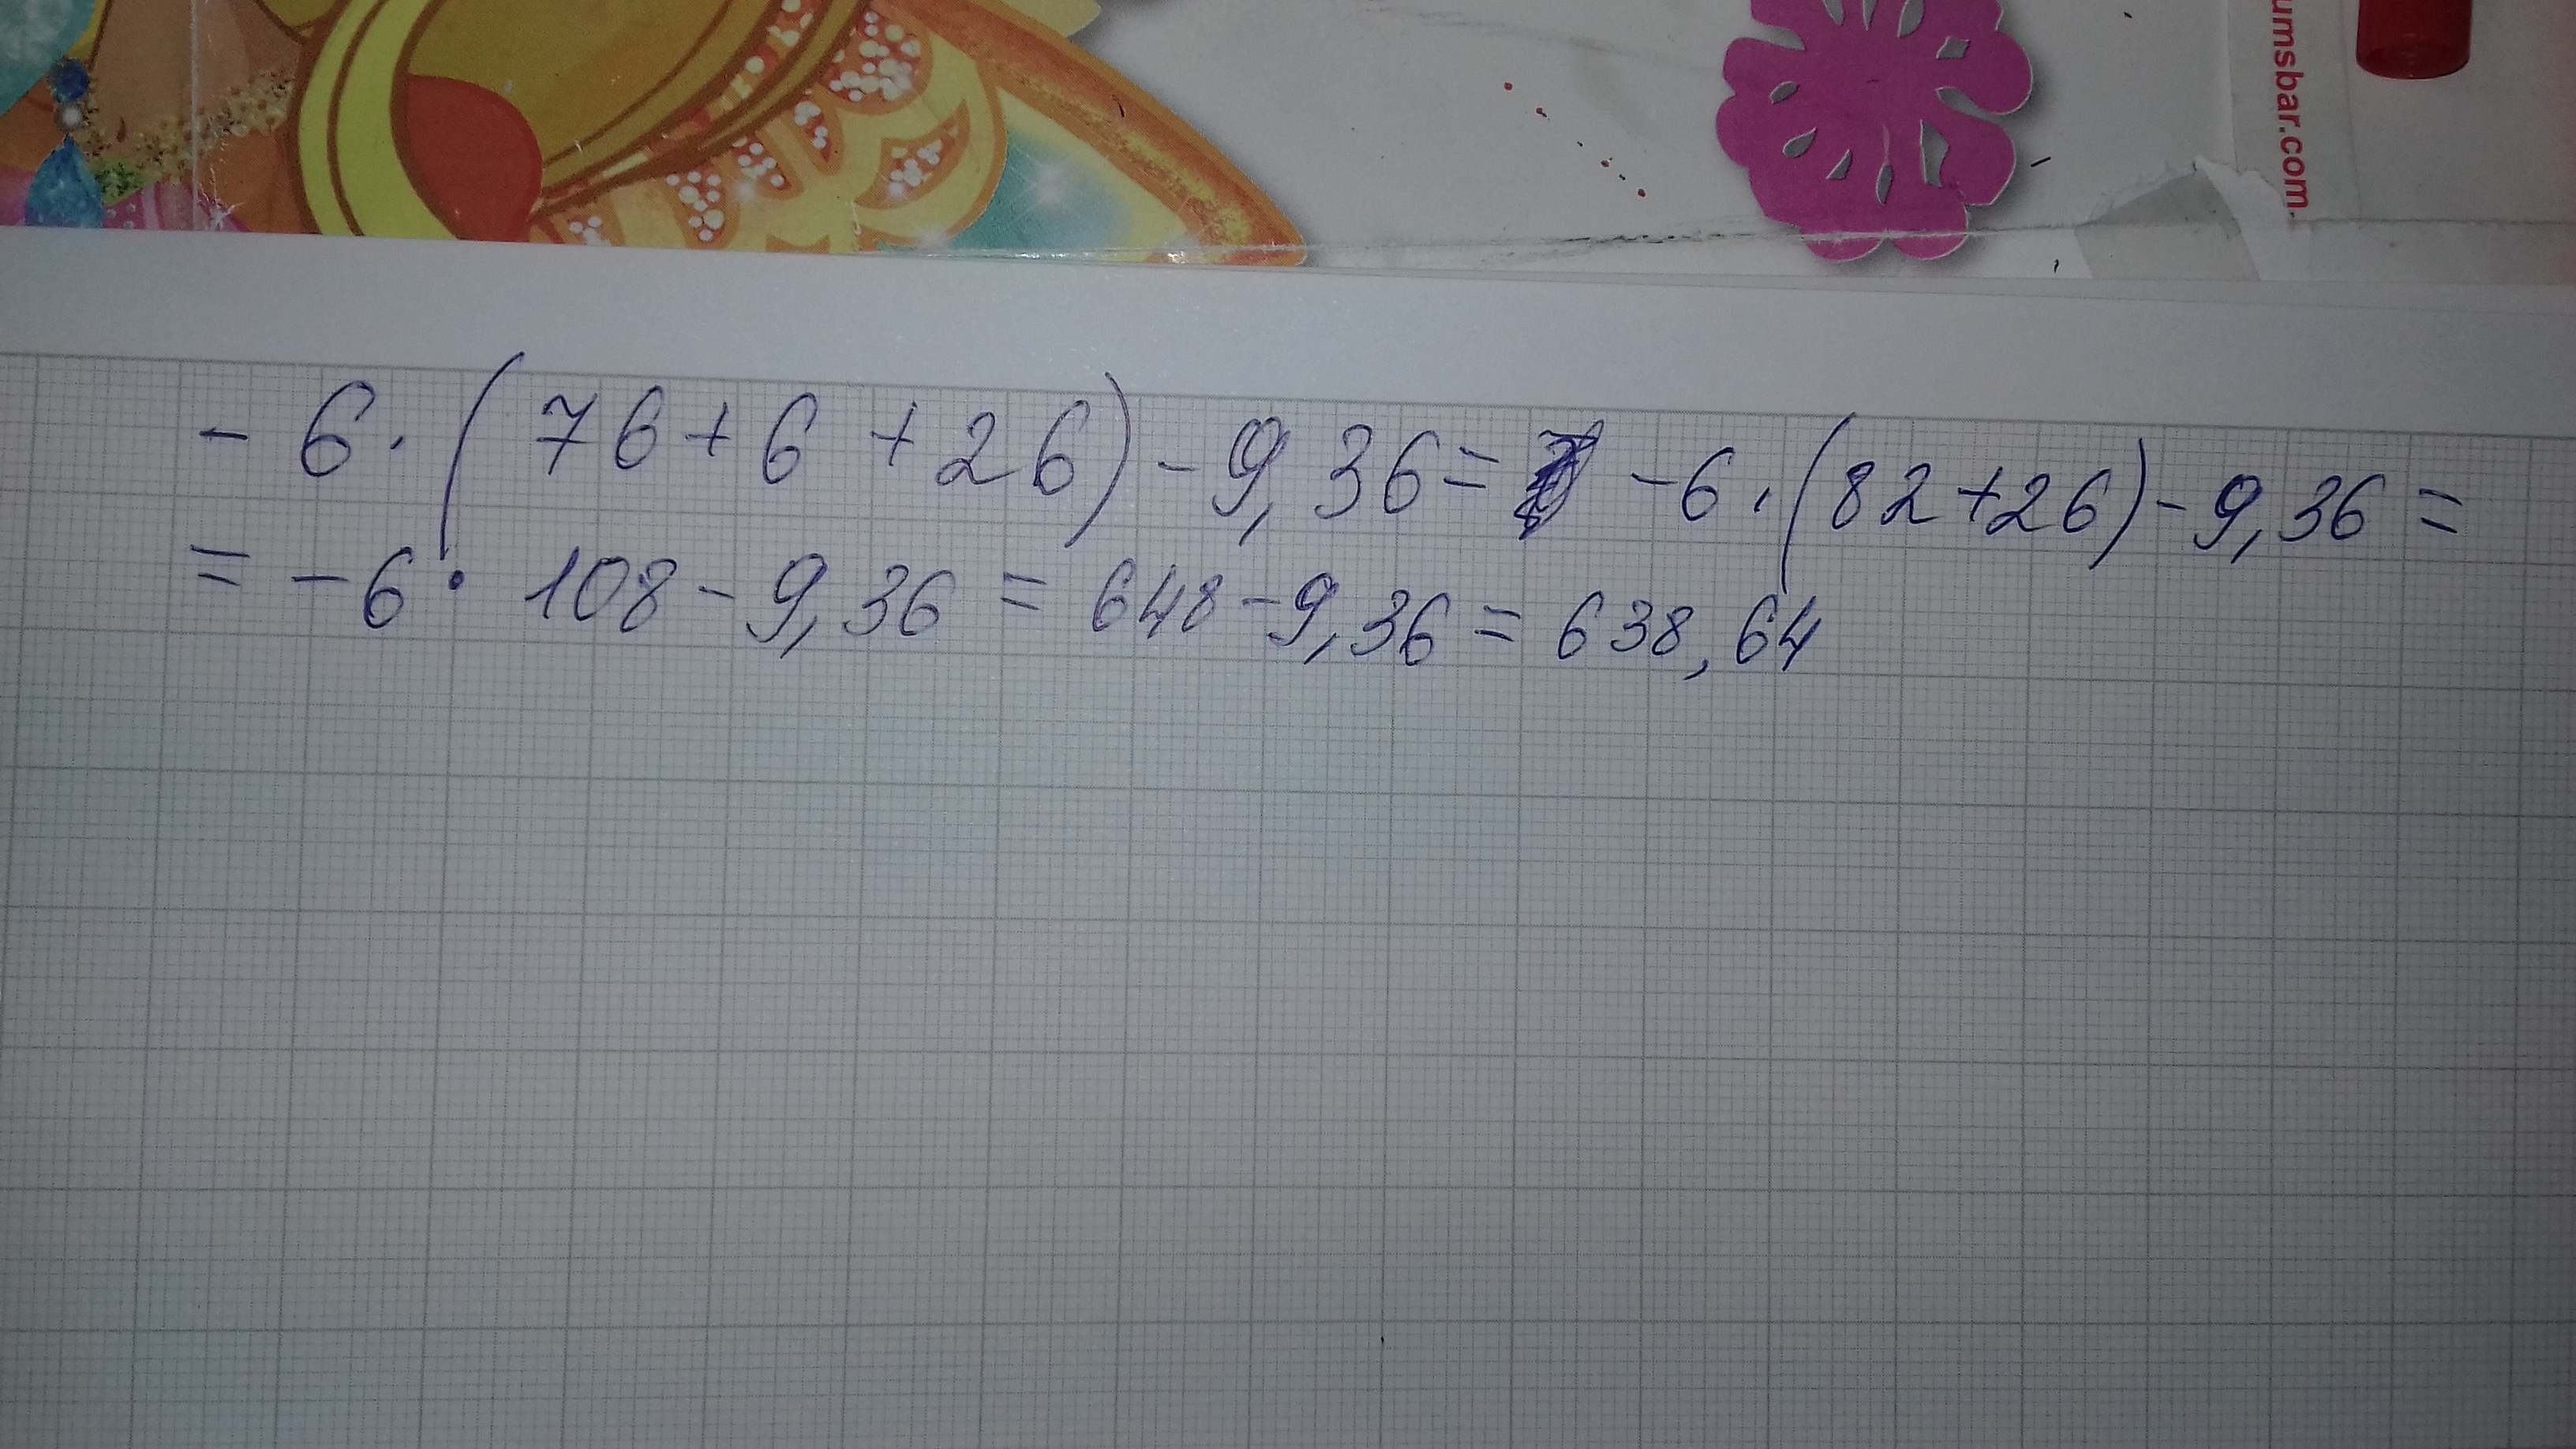 umsbar.com
- 6 · ( 76 + 6 + 26 ) - 9,36 = - 6 · ( 82 + 26 ) - 9,36 =
= - 6 · 108 - 9,36 = 648 - 9,36 = 638,64